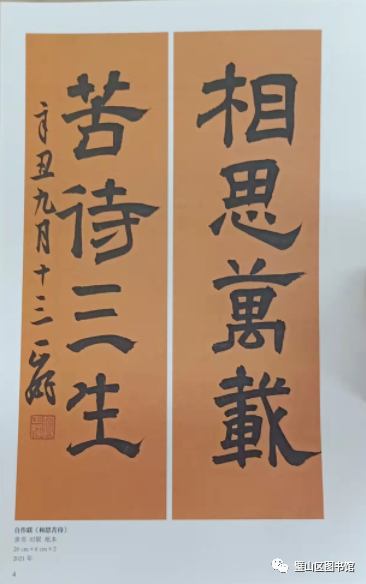 相思萬載
苦待三生
辛丑九月十三
自作联《相思苦待》
隶书 对联 纸本
2021 年
4
璧山区图书馆